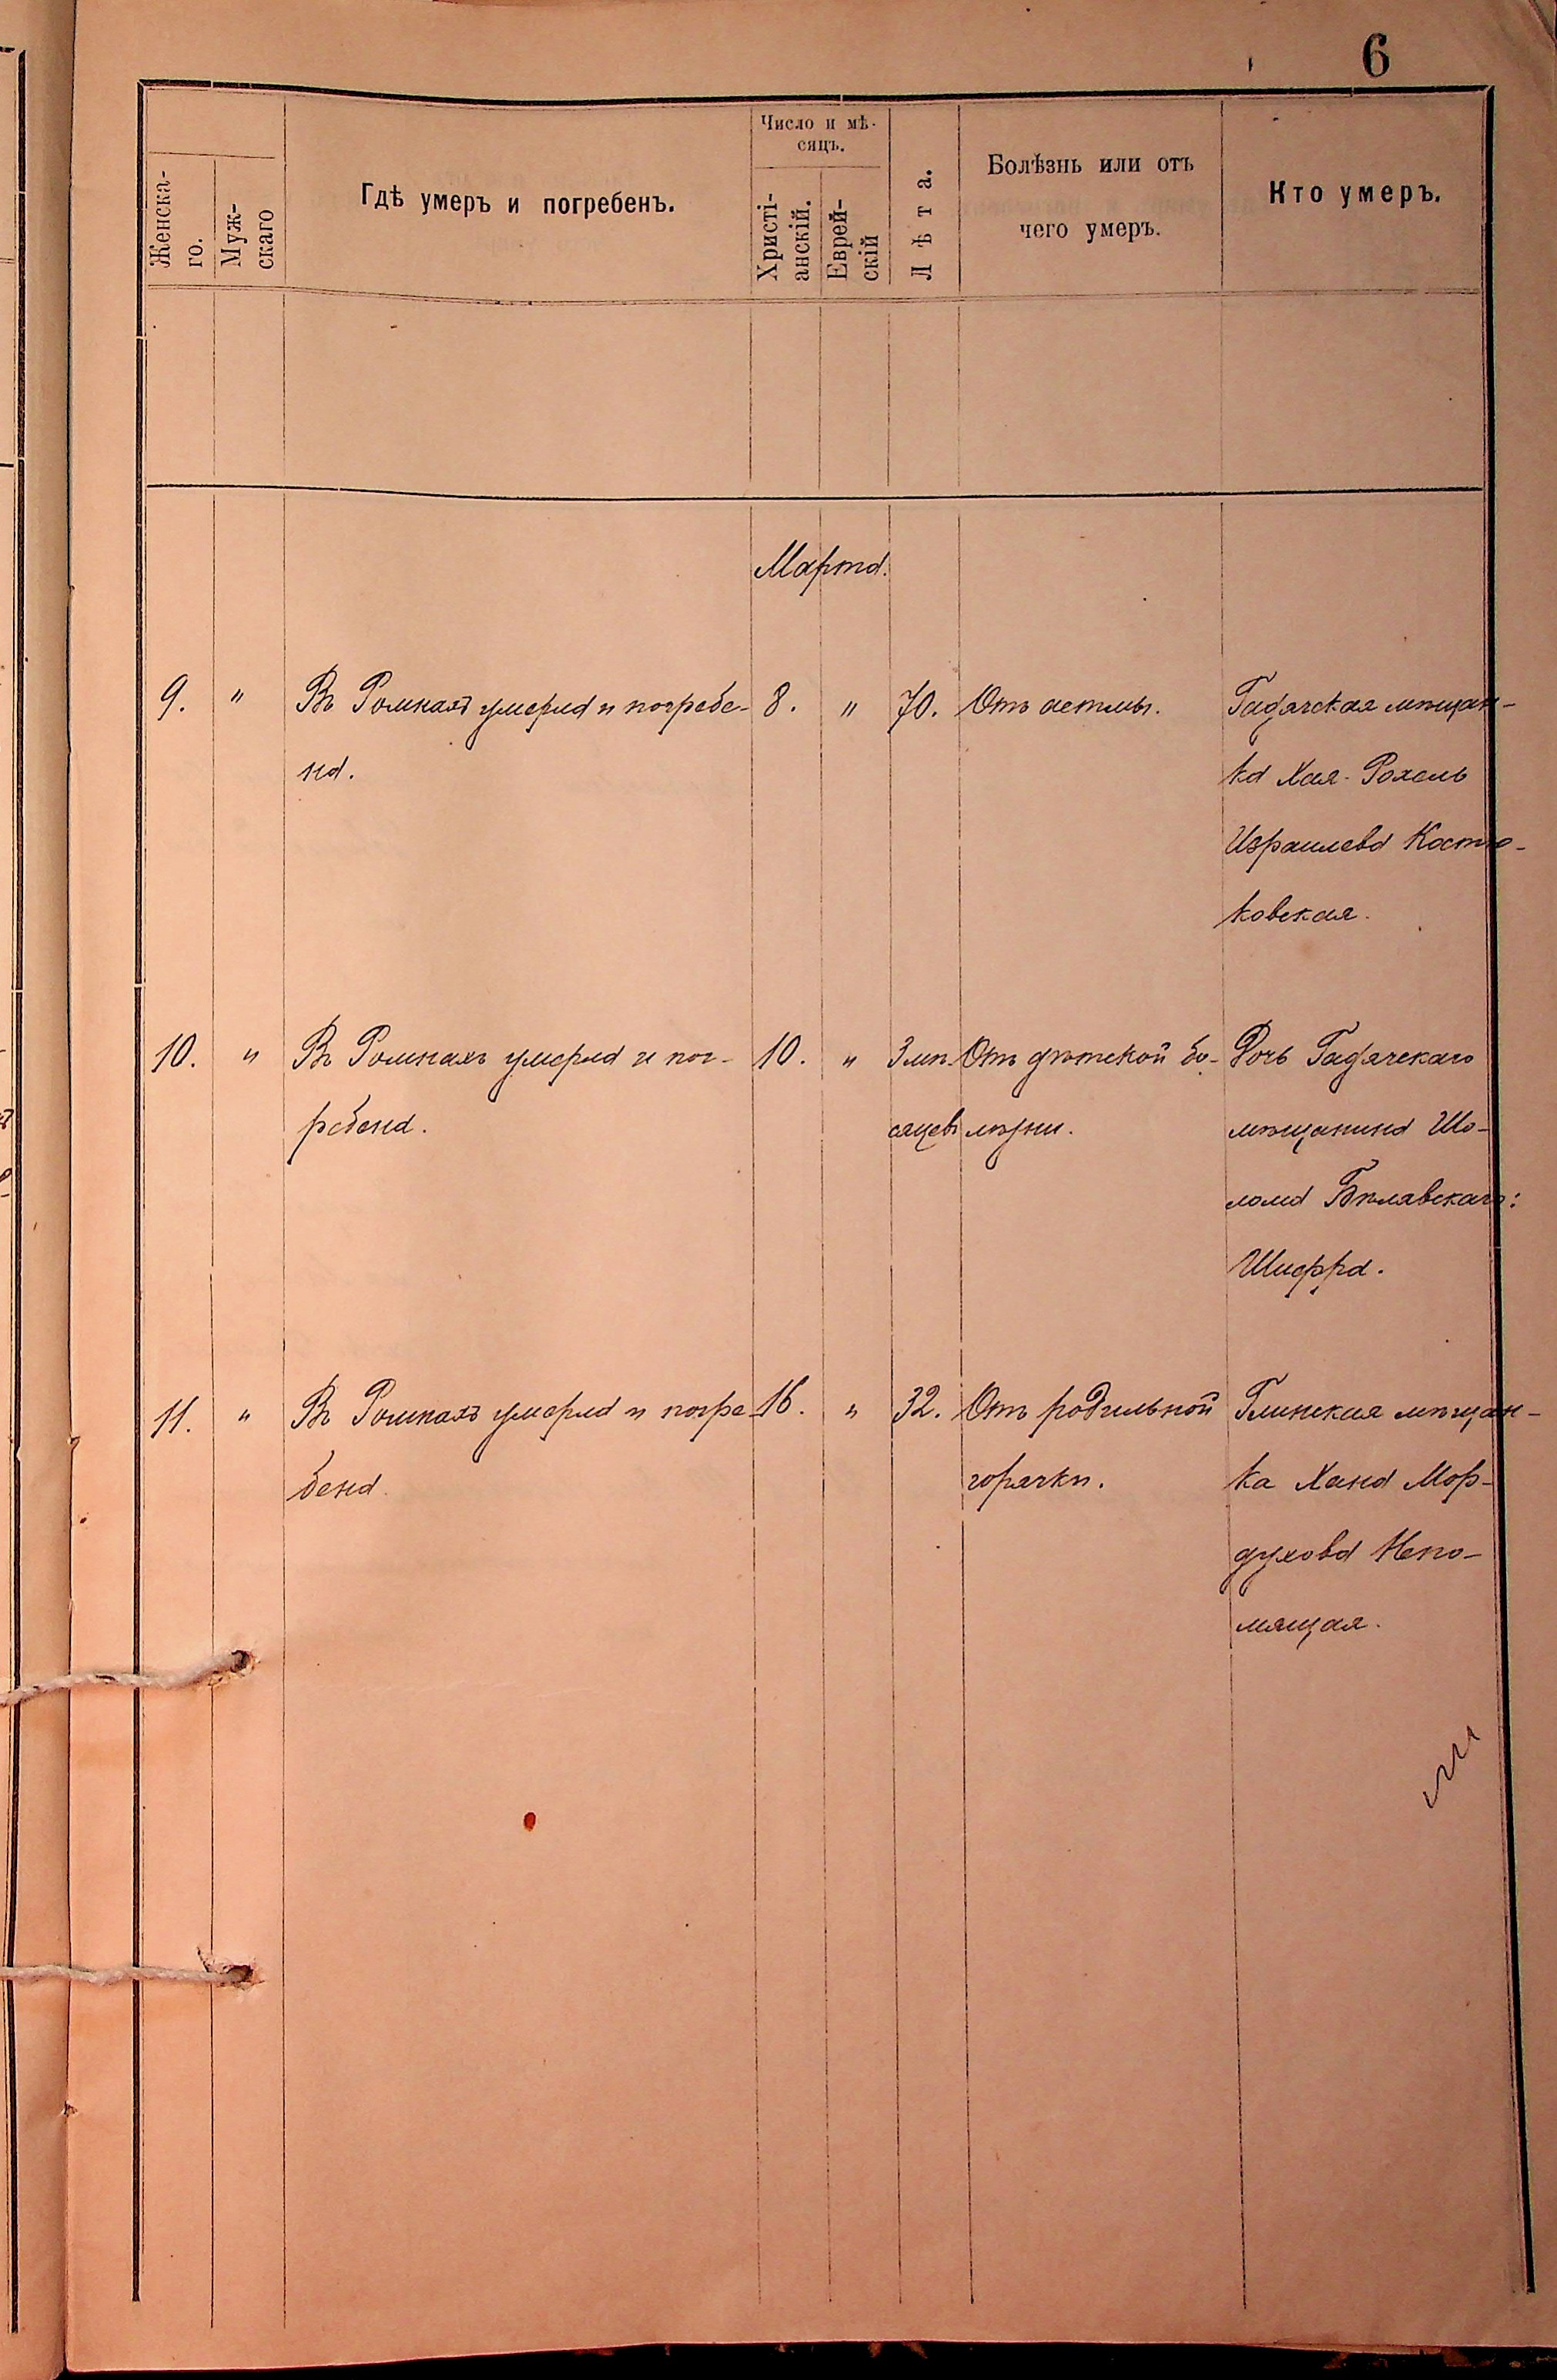 6
Женска-
го.
Муж-
скаго
Гдѣ умеръ и погребенъ.
Число и мѣ-
сяцъ.
Христі-
анскій.
Еврей-
скій
Лѣта.
Болѣзнь или отъ
чего умеръ.
Кто умеръ.
Марта.
9. " Въ Ромнахъ умерла и погребе- 8. " 70. Отъ астмы. Гадячская мѣщан-
на. ка Хая-Рохель
Израилева Костю-
ковская.
10. " Въ Ромнахъ умерла и пог- 10. " 3 мѣ- Отъ дѣтской бо- Дочь Гадячскаго
ребена. сяцевъ лѣзни. мѣщанина Шо-
лома Бѣлявскаго:
Шифра.
11. " Въ Ромнахъ умерла и погре- 16. " 32. Отъ родильной Глинская мѣщан-
бена. горячки. ка Хана Мор-
духова Непо-
мящая.